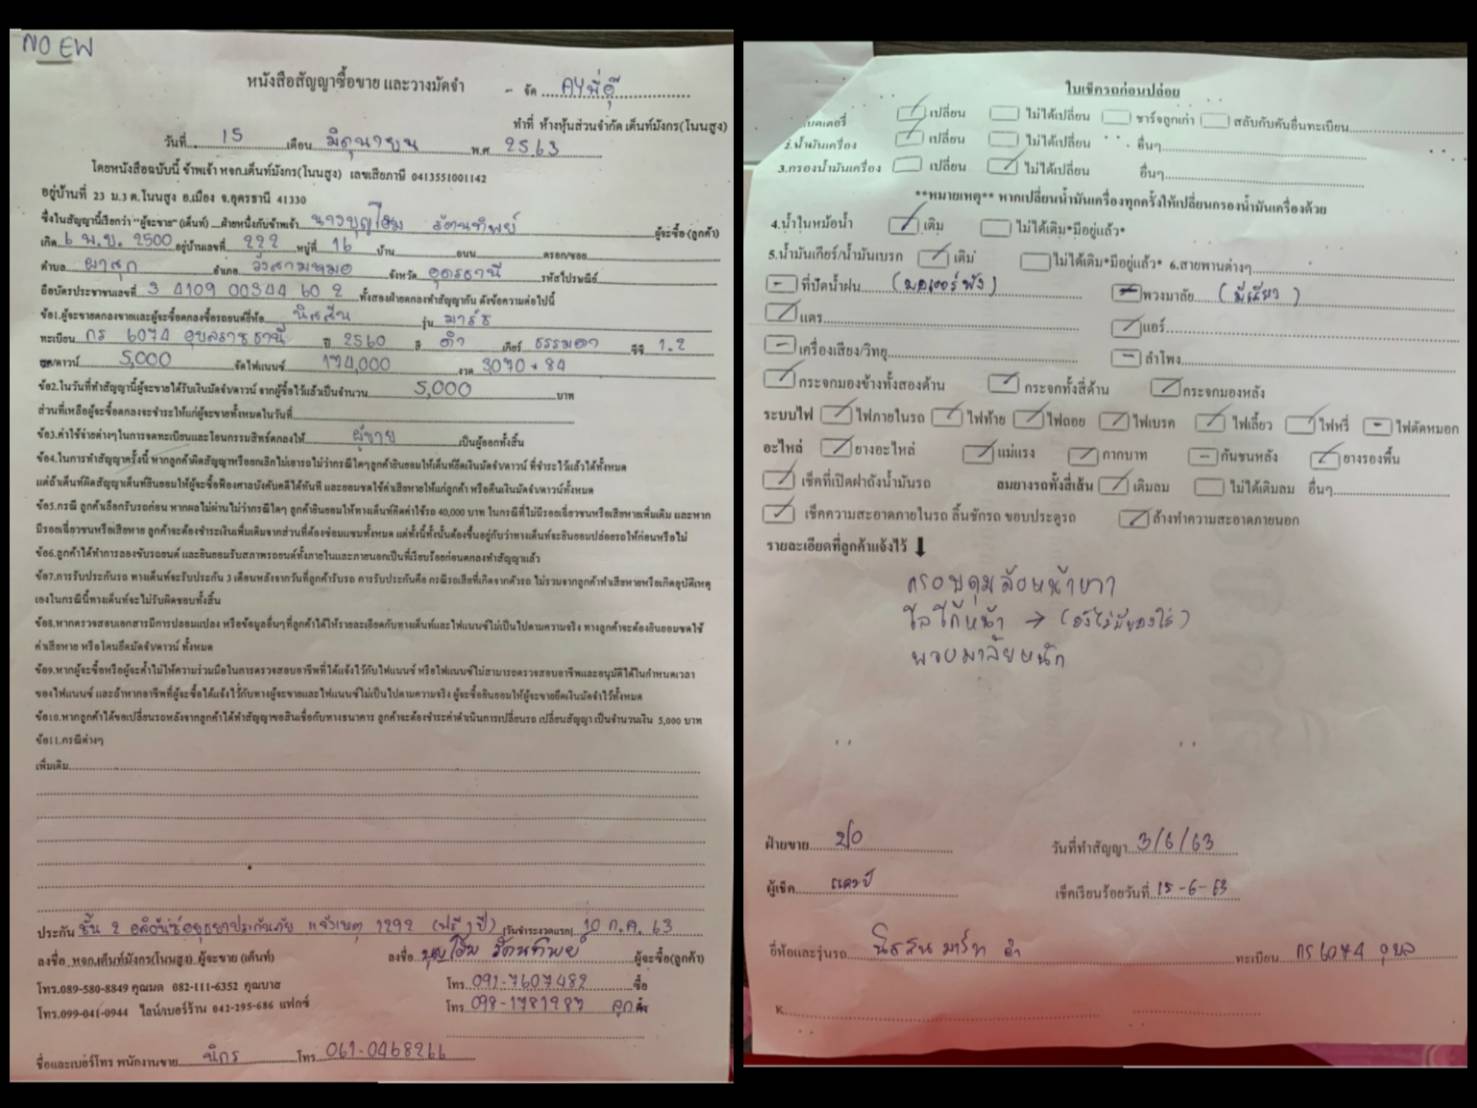 NO EW
หนังสือสัญญาซื้อขาย และวางมัดจำ
- จัด AYพี่อู๊
ทำที่ ห้างหุ้นส่วนจำกัด เต็นท์มังกร(โนนสูง)
วันที่ 15 เดือน มิถุนายน พ.ศ 2563
โดยหนังสือฉบับนี้ ข้าพเจ้า หจก.เต็นท์มังกร(โนนสูง) เลขเสียภาษี 0413551001142
อยู่บ้านที่ 23 ม.3 ต.โนนสูง อ.เมือง จ.อุดรธานี 41330
ซึ่งในสัญญานี้เรียกว่า "ผู้จะขาย" (เต็นท์) ฝ่ายหนึ่งกับข้าพเจ้า นางบุญโฮม รัตนทิพย์ ผู้จะซื้อ (ลูกค้า)
เกิด 6 พ.ย. 2500 อยู่บ้านเลขที่ 222 หมู่ที่ 16 บ้าน ถนน ตรอก/ซอย
ตำบล ผาสุก อำเภอ วังสามหมอ จังหวัด อุดรธานี รหัสไปรษณีย์
ถือบัตรประชาชนเลขที่ 3 4109 00344 60 2 ทั้งสองฝ่ายตกลงทำสัญญากัน ดังข้อความต่อไปนี้
ข้อ1.ผู้จะขายตกลงขายและผู้จะซื้อตกลงซื้อรถยนต์ยี่ห้อ นิสสัน รุ่น มาร์ช
ทะเบียน กร 6074 อุบลราชธานี ปี 2560 สี ดำ เกียร์ ธรรมดา ซีซี 1.2
สด/ดาวน์ 5,000 จัดไฟแนนซ์ 174,000 งวด 3070 * 84
ข้อ2.ในวันที่ทำสัญญานี้ผู้จะขายได้รับเงินมัดจำ/ดาวน์ จากผู้ซื้อไว้แล้วเป็นจำนวน 5,000 บาท
ส่วนที่เหลือผู้จะซื้อตกลงจะชำระให้แก่ผู้จะขายทั้งหมดในวันที่
ข้อ3.ค่าใช้จ่ายต่างๆในการจดทะเบียนและโอนกรรมสิทธ์ตกลงให้ ผู้ขาย เป็นผู้ออกทั้งสิ้น
ข้อ4.ในการทำสัญญาครั้งนี้ หากลูกค้าผิดสัญญาหรือยกเลิกไม่เอารถ ไม่ว่ากรณีใดๆลูกค้ายินยอมให้เต็นท์ยึดเงินมัดจำ/ดาวน์ ที่ชำระไว้แล้วได้ทั้งหมด
แต่ถ้าเต็นท์ผิดสัญญาเต็นท์ยินยอมให้ผู้จะซื้อฟ้องศาลบังคับคดีได้ทันที และยอมชดใช้ค่าเสียหายให้แก่ลูกค้า หรือคืนเงินมัดจำ/ดาวน์ทั้งหมด
ข้อ5.กรณี ลูกค้าเลือกรับรถก่อน หากผลไม่ผ่านไม่ว่ากรณีใดๆ ลูกค้ายินยอมให้ทางเต็นท์คิดค่าใช้รถ 40,000 บาท ในกรณีที่ไม่มีรอยเฉี่ยวชนหรือเสียหายเพิ่มเติม และหาก
มีรอยเฉี่ยวชนหรือเสียหาย ลูกค้าจะต้องชำระเงินเพิ่มเติมจากส่วนที่ต้องซ่อมแซมทั้งหมด แต่ทั้งนี้ทั้งนั้นต้องขึ้นอยู่กับว่าทางเต็นท์จะยินยอมปล่อยรถให้ก่อนหรือไม่
ข้อ6.ลูกค้าได้ทำการลองขับรถยนต์ และยินยอมรับสภาพรถยนต์ทั้งภายในและภายนอกเป็นที่เรียบร้อยก่อนตกลงทำสัญญาแล้ว
ข้อ7.การรับประกันรถ ทางเต็นท์จะรับประกัน 3 เดือนหลังจากวันที่ลูกค้ารับรถ การรับประกันคือ กรณีรถเสียที่เกิดจากตัวรถ ไม่รวมจากลูกค้าทำเสียหายหรือเกิดอุบัติเหตุ
เองในกรณีนี้ทางเต็นท์จะไม่รับผิดชอบทั้งสิ้น
ข้อ8.หากตรวจสอบเอกสารมีการปลอมแปลง หรือข้อมูลอื่นๆที่ลูกค้าได้ให้รายละเอียดกับทางเต็นท์และไฟแนนซ์ไม่เป็นไปตามความจริง ทางลูกค้าจะต้องยินยอมชดใช้
ค่าเสียหาย หรือโดนยึดมัดจำ/ดาวน์ ทั้งหมด
ข้อ9.หากผู้จะซื้อหรือผู้ค้ำไม่ให้ความร่วมมือในการตรวจสอบอาชีพที่ได้แจ้งไว้กับไฟแนนซ์ หรือไฟแนนซ์ไม่สามารถตรวจสอบอาชีพและอนุมัติได้ในกำหนดเวลา
ของไฟแนนซ์ และถ้าหากอาชีพที่ผู้จะซื้อได้แจ้งไว้กับทางผู้จะขายและไฟแนนซ์ไม่เป็นไปตามความจริง ผู้จะซื้อยินยอมให้ผู้จะขายยึดเงินมัดจำไว้ทั้งหมด
ข้อ10.หากลูกค้าได้ขอเปลี่ยนรถหลังจากลูกค้าได้ทำสัญญาขอสินเชื่อกับทางธนาคาร ลูกค้าจะต้องชำระค่าดำเนินการเปลี่ยนรถ เปลี่ยนสัญญา เป็นจำนวนเงิน 5,000 บาท
ข้อ11.กรณีต่างๆ
เพิ่มเติม
ประกัน ชั้น 2 อลิอันซ์อยุธยาประกันภัย แจ้งเหตุ 1292 (ฟรี 1 ปี) (วันชำระงวดแรก) 10 ก.ค. 63
ลงชื่อ หจก.เต็นท์มังกร(โนนสูง) ผู้จะขาย (เต็นท์) ลงชื่อ บุญโฮม รัตนทิพย์ ผู้จะซื้อ(ลูกค้า)
โทร.089-580-8849 คุณมด 082-111-6352 คุณบาส โทร 091-7607482 ซื้อ
โทร.099-041-0944 ไลน์/เบอร์ร้าน 042-295-686 แฟกซ์ โทร 098-1781987 ลูก
ชื่อและเบอร์โทร พนักงานขาย นิกร โทร 061-0468266
ใบเช็ครถก่อนปล่อย
เปลี่ยน ไม่ได้เปลี่ยน ชาร์จลูกเก่า สลับกับคันอื่นทะเบียน
2.น้ำมันเครื่อง เปลี่ยน ไม่ได้เปลี่ยน อื่นๆ
3.กรองน้ำมันเครื่อง เปลี่ยน ไม่ได้เปลี่ยน อื่นๆ
**หมายเหตุ** หากเปลี่ยนน้ำมันเครื่องทุกครั้งให้เปลี่ยนกรองน้ำมันเครื่องด้วย
4.น้ำในหม้อน้ำ เติม ไม่ได้เติม*มีอยู่แล้ว*
5.น้ำมันเกียร์/น้ำมันเบรก เติม ไม่ได้เติม*มีอยู่แล้ว* 6.สายพานต่างๆ
ที่ปัดน้ำฝน (มอเตอร์พัง) พวงมาลัย (มีเสียว)
แตร แอร์
เครื่องเสียง/วิทยุ ลำโพง
กระจกมองข้างทั้งสองด้าน กระจกทั้งสี่ด้าน กระจกมองหลัง
ระบบไฟ ไฟภายในรถ ไฟท้าย ไฟถอย ไฟเบรค ไฟเลี้ยว ไฟหรี่ ไฟตัดหมอก
อะไหล่ ยางอะไหล่ แม่แรง กากบาท กันชนหลัง ยางรองพื้น
เช็คที่เปิดฝาถังน้ำมันรถ ลมยางรถทั้งสี่เส้น เติมลม ไม่ได้เติมลม อื่นๆ
เช็คความสะอาดภายในรถ ลิ้นชักรถ ขอบประตูรถ ล้างทำความสะอาดภายนอก
รายละเอียดที่ลูกค้าแจ้งไว้ ⬇
ครอบดุมล้อหน้าขวา
โลโก้หน้า → (ยังไม่มีของใส่)
พวงมาลัยหนัก
ฝ่ายขาย วันที่ทำสัญญา 3/6/63
ผู้เช็ค เช็คเรียบร้อยวันที่ 15-6-63
ยี่ห้อและรุ่นรถ นิสสัน มาร์ท ดำ ทะเบียน กร 6074 อุบล
K